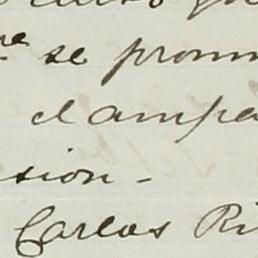 se prom
el ampa
sion -
Carlos Ri